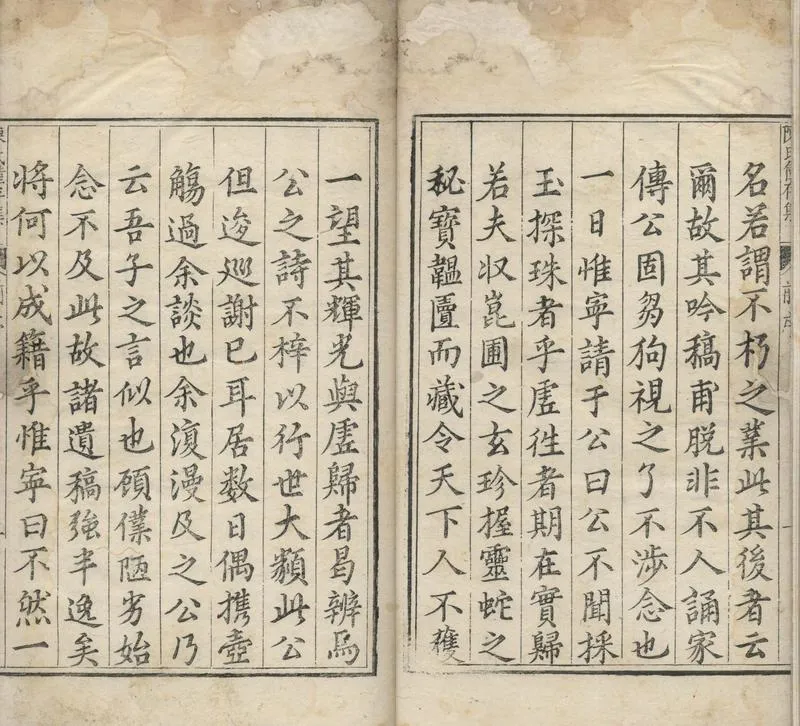 名若謂不朽之業此其後者云
爾故其吟稿甫脫非不人誦家
傳公固芻狗視之了不涉念也
一日惟寧請于公曰公不聞採
玉探珠者乎虛徃者期在實歸
若夫収崑圃之玄珍握靈蛇之
秘寶韞匵而藏令天下人不獲
一望其輝光與虛歸者曷辨焉
公之詩不梓以行世大類此公
但逡巡謝已耳居數日偶携壺
觴過余談也余復漫及之公乃
云吾子之言似也顧僕陋劣始
念不及此故諸遺稿強半逸矣
將何以成籍乎惟寧曰不然一